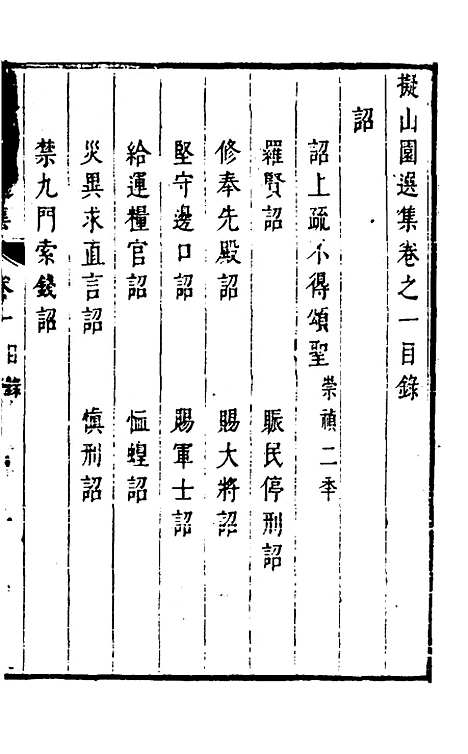 擬山園選集卷之一目錄
詔
詔上疏不得頌聖 崇禎二年
羅賢詔 賑民停刑詔
修奉先殿詔 賜大將詔
堅守邊口詔 賜軍士詔
給運糧官詔 恤蝗詔
災異求直言詔 慎刑詔
禁九門索錢詔